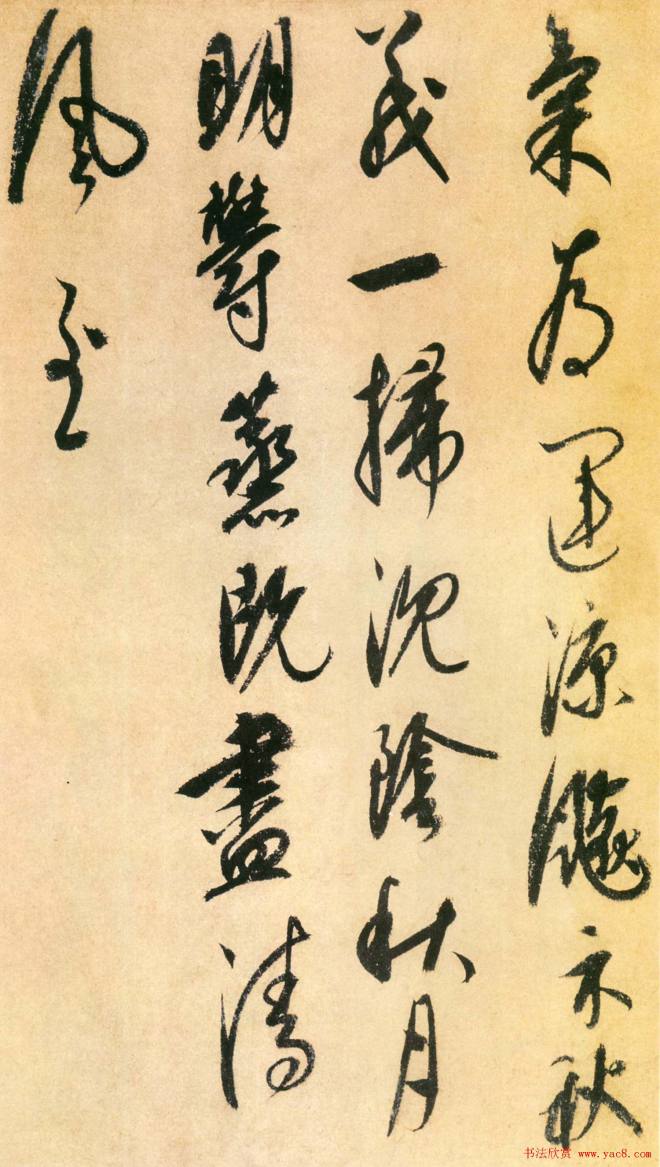 氣為運涼飈示秋
義一掃沉陰秋月
明鬱蒸既盡清
風至
书法欣赏 www.yac8.com